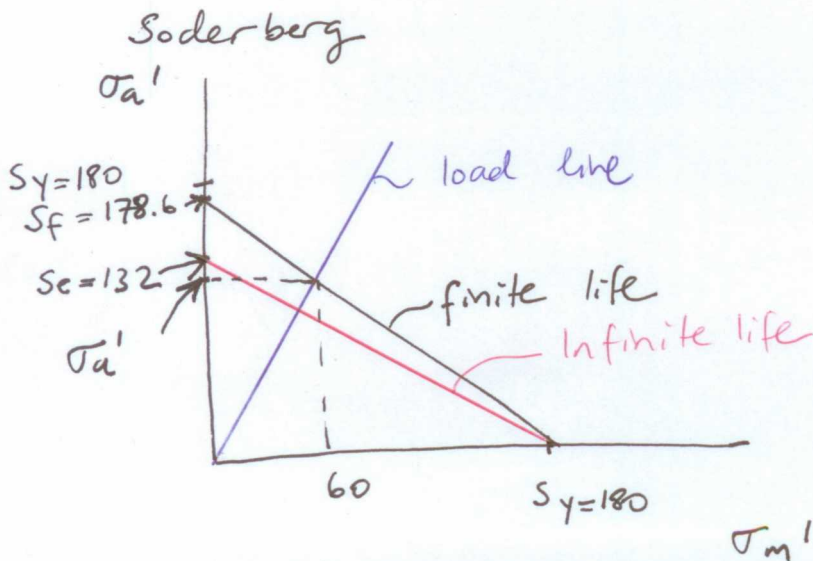 Soderberg
σa'
Sy=180
Sf=178.6
Se=132
σa'
load line
finite life
Infinite life
60
Sy=180
σm'